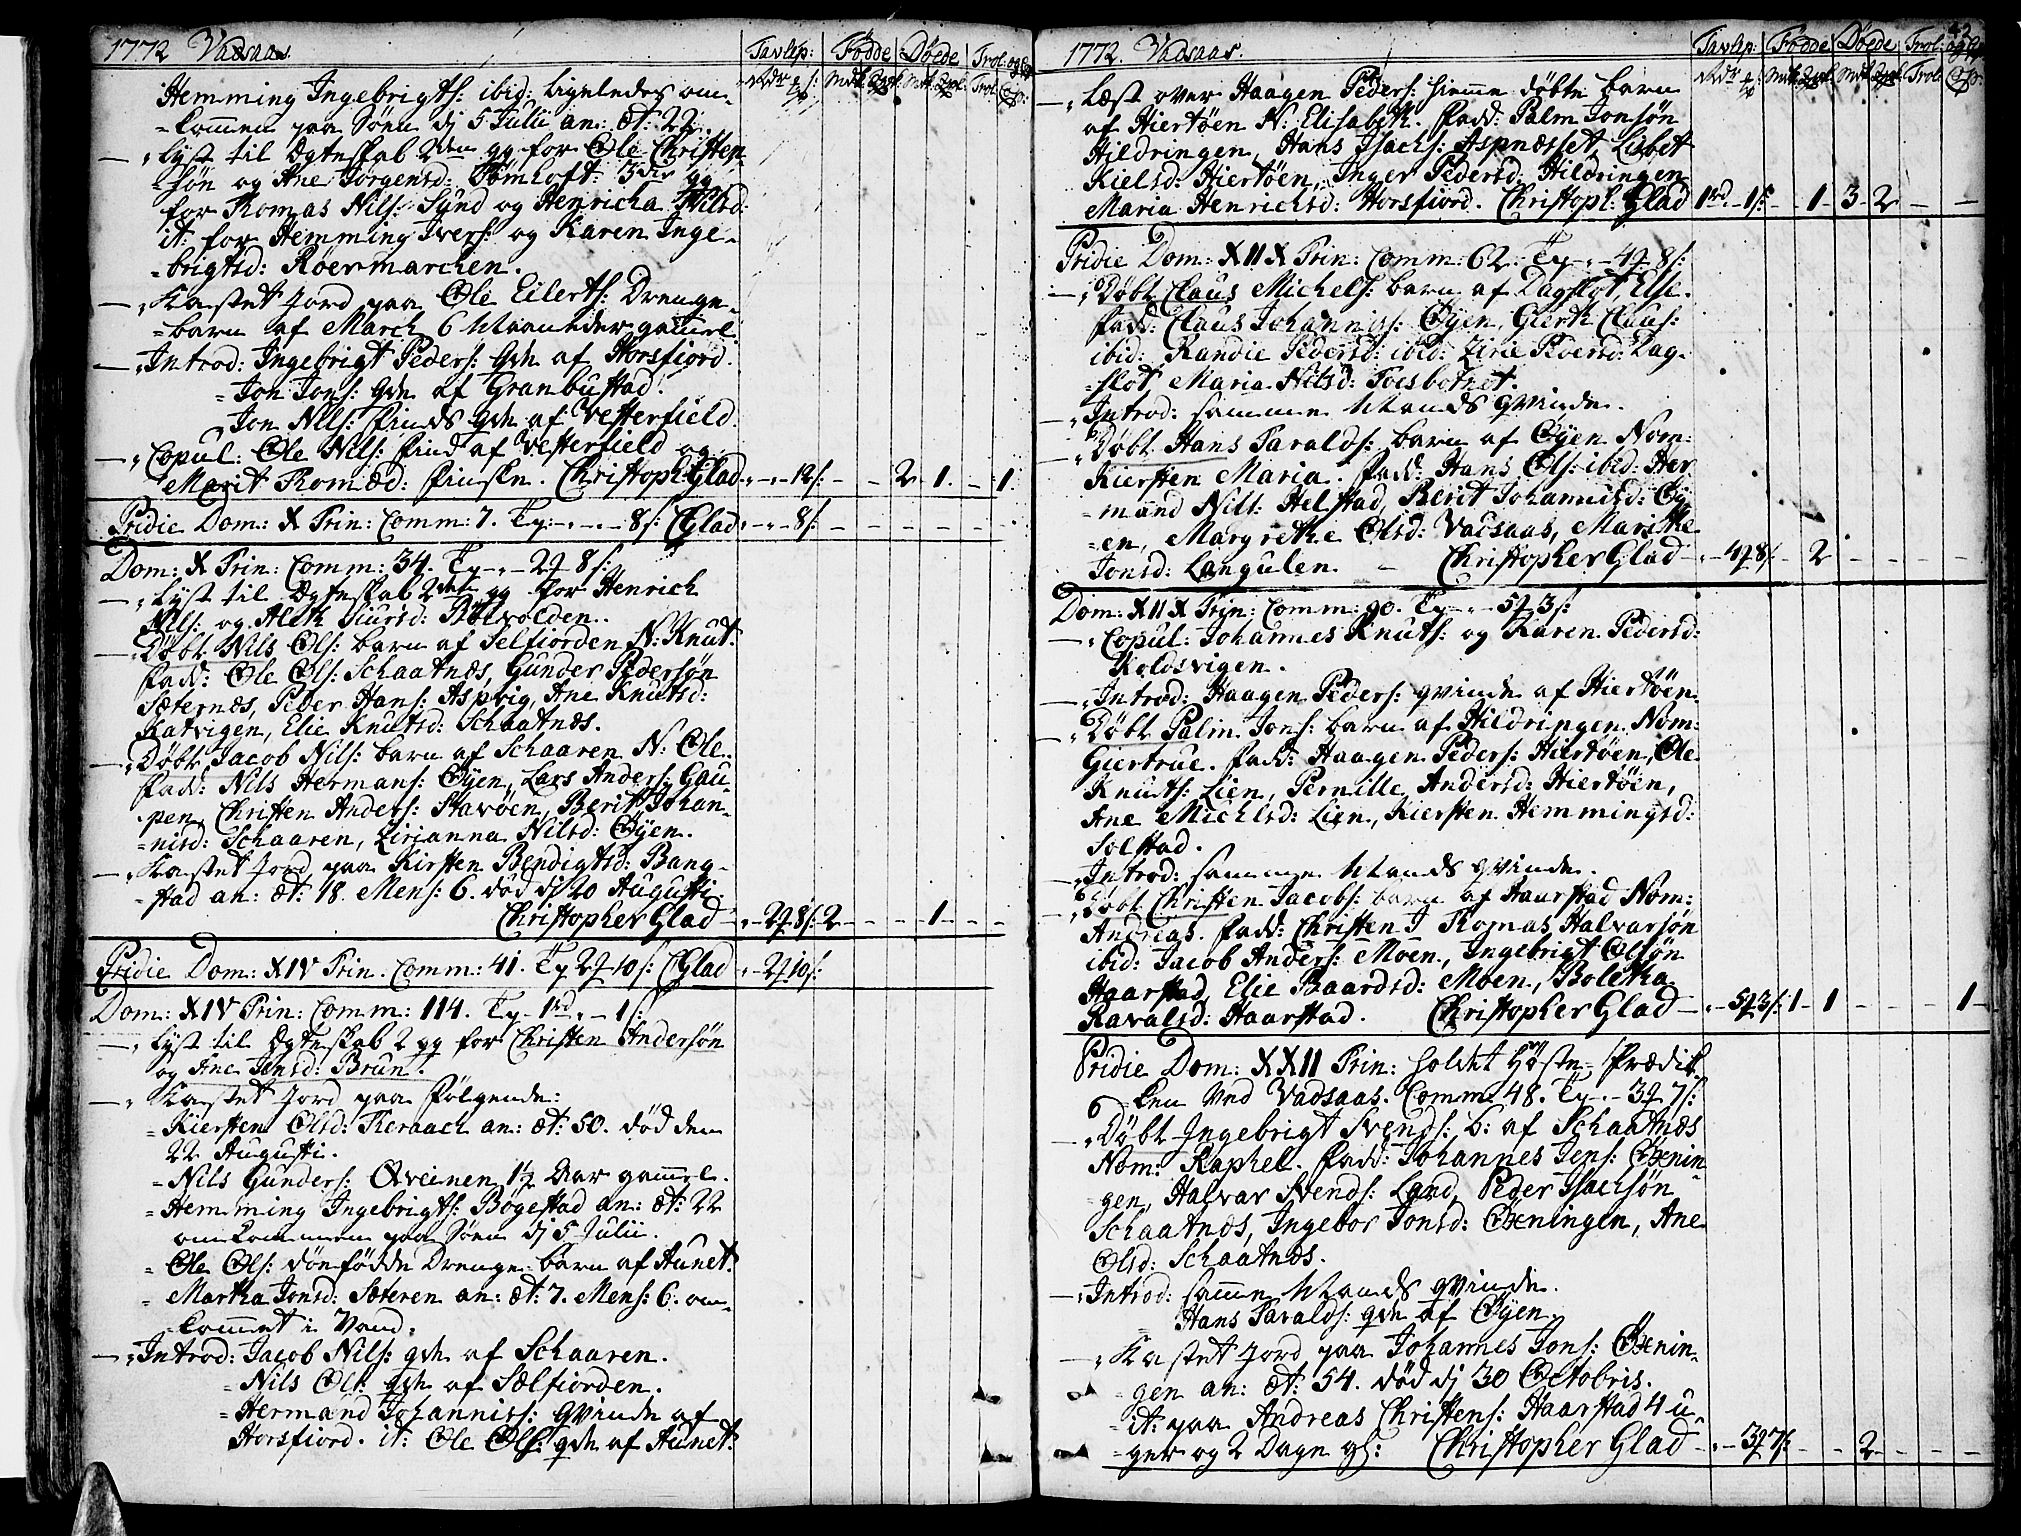 1772 Vadsaas.
Tavlep: Födde Döede Trol: og Cop:
Rdr ꝗ s: Mdk Qvk. Mdk. Qvl. Trol. Cop:
Hemming Ingebrigts: ibid: ligeledes om-
-kommen paa Søen dj 5 Julii an: æt: 22.
- Lyst til Ægteskab 2den gg for Ole Christen-
søn og Ane Jørgensd: Tømhoft 3die gg
for Thomas Nils: Sund og Henricha Nilsd:
it: for Hemming Ivers: og Karen Inge-
-brigtsd: Røermarchen.
- Kastet Jord paa Ole Eilerts: Drenge-
-barn af March 6 Maaneder gammel.
- Introd: Ingebrigt Peders: qvn af Horsfiord.
- Jon Jons: qvn af Granbustad.
Jon Nils: Finds qvn af Vesterfield.
- Copul: Ole Nils: Find af Vesterfield og
Marit Thomæd: Finskn. Christoph: Glad - - 12 s: - - 2 1 - 1
Pridie Dom: X Trin: Comm: 7. Tp - - - 8 s: CGlad - - 8 s:
Dom: X Trin: Comm: 34. Tp - - 2ꝗ 8 s:
- Lyst til Ægteskab 2den gg for Henrich
Nils: og Aleth Siursd: Bølvolden.
- Døbt Nils Ols: barn af Selfiorden N: Knut.
Fadd: Ole Ols: Schaatnæs, Gunder Pedersøn
Sæternæs, Peder Hans: Aspvig, Ane Knutsd:
Katvigen, Elie Knutsd: Schaatnæs.
- Døbt Jacob Nils: barn af Schaaren N: Ole.
Fadd: Nils Hermans: Øyen, Lars Anders: Gau-
pen, Christen Anders: Stavøen, Berit Johan-
-nisd: Schaaren, Zirianna Nilsd: Øyen.
- Kastet Jord paa Kirsten Bendigtsd: Bang-
-stad an: æt: 18. Mens: 6. død dj 20 Augusti.
Christopher Glad - - 2ꝗ 8 s: 2 - - - 1 - -
Pridie Dom: XIV Trin. Comm: 41. Tp 2ꝗ 10 s: CGlad - 2ꝗ 10 s:
Dom: XIV Trin: Comm: 114. Tp 1rd - - 1 s:
- Lyst til Ægteskab 2 gg for Christen Andersøn
og Ane Jensd: Brun.
- Kastet Jord paa følgende:
- Kiersten Olsd: Theraach an: æt: 50. død den
22 Augusti.
- Nils Gunders: Qveinen 1½ Aar gammel.
- Hemming Ingebrigts: Bøgestad an: æt: 22
omkommen paa Søen dj 5 Julii.
- Ole Ols: dönfödde Drenge-barn af Aunet.
- Martha Jonsd: Sæteren an: æt: 7. Mens: 6. om-
-kommet i Vand.
- Introd: Jacob Nils: qvn af Schaaren.
- Nils Ols: qvn af Sælfiorden.
- Hermand Johanniss: qvinde af
Horsfiord. it: Ole Ols: qvn af Aunet.
42
1772. Vadsaas.
Tavlep: Födde Döede Trol: og Cop:
Rdr ꝗ s: Mdk Qvl. Mdk Qvl. Trol: Cop:
- Læst over Haagen Peders: hiemme døbte barn
af Hiertøen N: Elisabeth. Fadd: Palm Jonsøn
Hildringen, Hans Isachs: Aspnæsset, Lisbet
Kielsd: Hiertøen, Inger Pedersd: Hildringen
Maria Henrichsd: Horsfiord. Christoph: Glad 1rd - 1 s: - 1 3 2 - -
Pridie Dom: XIIX Trin: Comm: 62. Tp - - 4ꝗ 8 s:
- Døbt Claus Michels: barn af Dagslot, Else.
Fadd: Claus Johanniss: Øyen, Gierth Claus:
ibid: Randie Pedersd: ibid: Zirie Peersd: Dag-
-slot, Maria Nilsd: Foesbotnet.
- Introd: samme Mands qvinde.
- Døbt Hans Taralds: barn af Øyen Nom:
Kiersten Maria. Fadd: Hans Ols: ibid: Her-
mand Nils: Helstad, Berit Johannisd: Øy-
-en, Margrethe Olsd: Vadsaas, Marethe
Jonsd: Langulen. - Christopher Glad - 4ꝗ 8 s - 2 - - - -
Dom: XIIX Trin: Comm: 90. Tp - - 5ꝗ 3 s:
- Copul: Johannes Knuts: og Karen Pedersd:
Koldsvigen.
- Introd: Haagen Peders: qvinde af Hiertøen
- Døbt Palm Jons: barn af Hildringen Nom:
Giertrue. Fadd: Haagen Peders: Hiertøen, Ole
Knuts: Lien, Pernille Andersd: Hiertøen,
Ane Michlsd: Lien, Kiersten Hemmingsd:
Solstad.
- Introd: samme Mands qvinde.
- Døbt Christen Jacobs: barn af Haarstad Nom:
Andreas. Fadd: Christen J Thomas Halvarsøn
ibid: Jacob Anders: Moen, Ingebrigt Olsøn
Haarstad, Elie Baardsd: Moen, Boletha
Ravalsd: Haarstad. Christopher Glad - - 5ꝗ 3 s: 1 - 1 - - - - 1
Pridie Dom: XXII Trin: holdt Høste-Prædik-
ken ved Vadsaas. Comm: 48. Tp - - 3ꝗ 7 s:
- Døbt Ingebrigt Svends: b: af Schaatnæs
Nom: Raphel. Fadd: Johannes Jens: Øxenin-
gen, Halvar Svends: Land, Peder Isachsøn
Schaatnæs, Ingebor Jonsd: Øxeningen, Ane
Olsd: Schaatnæs.
- Introd: samme Mands qvinde.
- Hans Taralds: qvn af Øyen.
- Kastet Jord paa Johannes Jons: Øxenin-
gen an: æt: 54. død dj 30 Octobris.
- it: paa Andreas Christens: Haarstad 4 u-
-ger og 2 Dage gl: Christopher Glad - - 3ꝗ 7 s: - - 2 - - - -